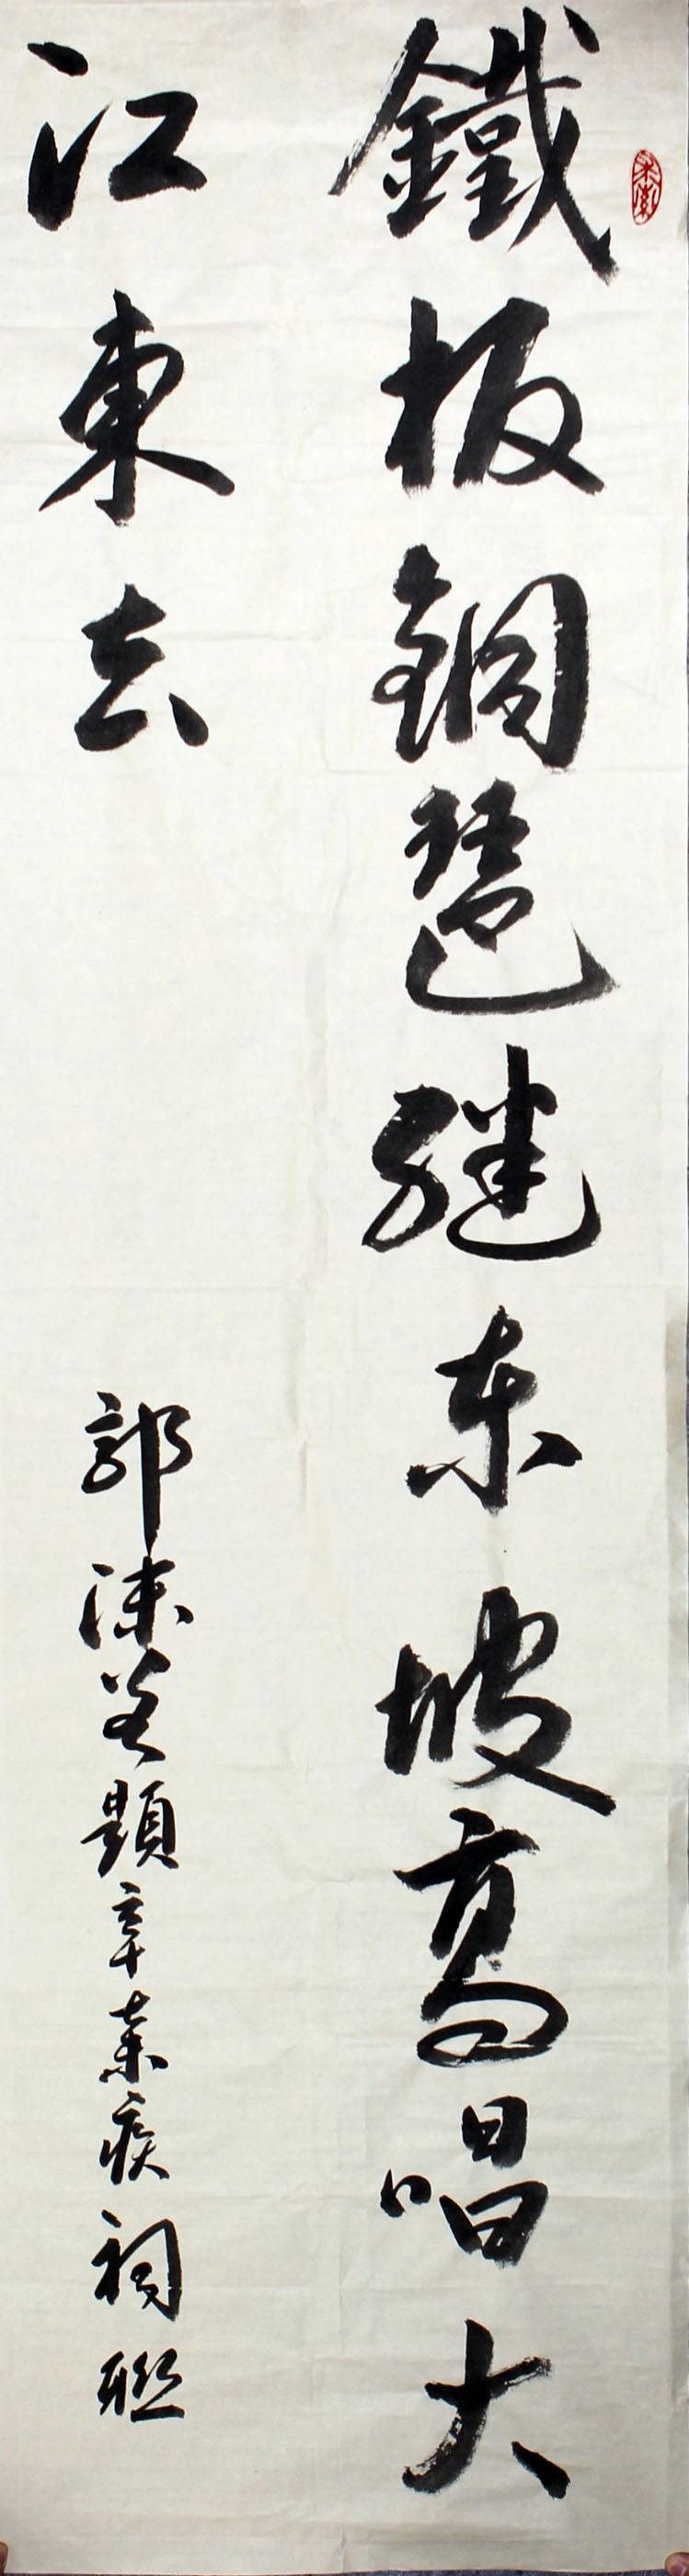 鐵板銅琶繼东坡高唱大
江東去
郭沫若題辛棄疾祠聯